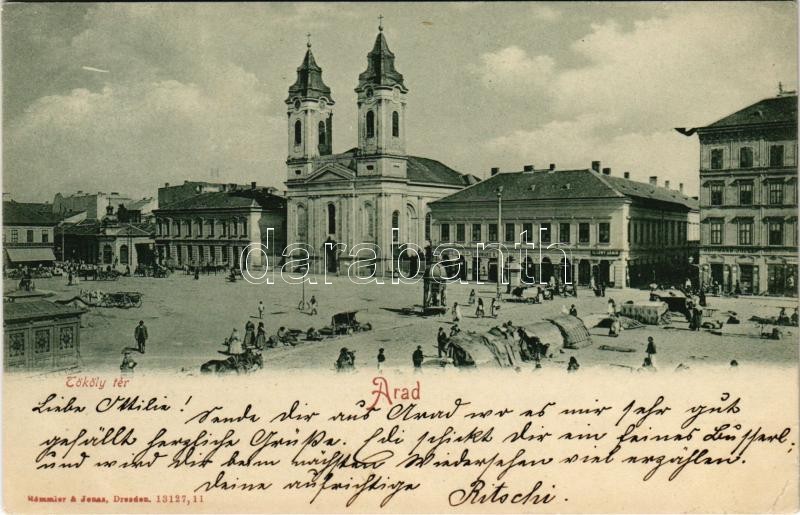 darabanth.com
Tököly tér
Arad
Liebe Ottilie!
Sende Dir aus Arad wo es mir sehr gut
gefällt herzliche Grüße. Edi schickt Dir ein feines Busserl;
und wird Dir beim nächsten Wiedersehen viel erzählen.
Deine aufrichtige Ritschi.
Römmler & Jonas, Dresden. 13127,11